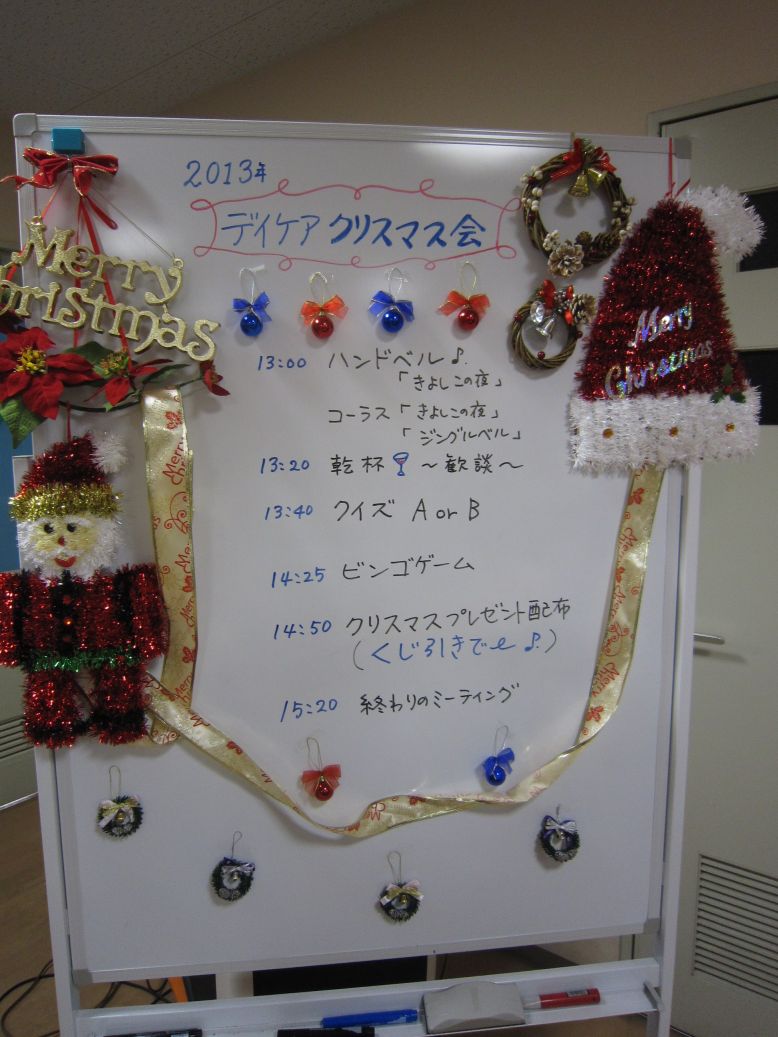 2013年
デイケア クリスマス会
Merry
Christmas
Merry
Christmas
13:00 ハンドベル♪
「きよしこの夜」
コーラス「きよしこの夜」
「ジングルベル」
13:20 乾杯 ～歓談～
13:40 クイズ A or B
14:25 ビンゴゲーム
14:50 クリスマスプレゼント配布
(くじ引きで♪)
15:20 終わりのミーティング